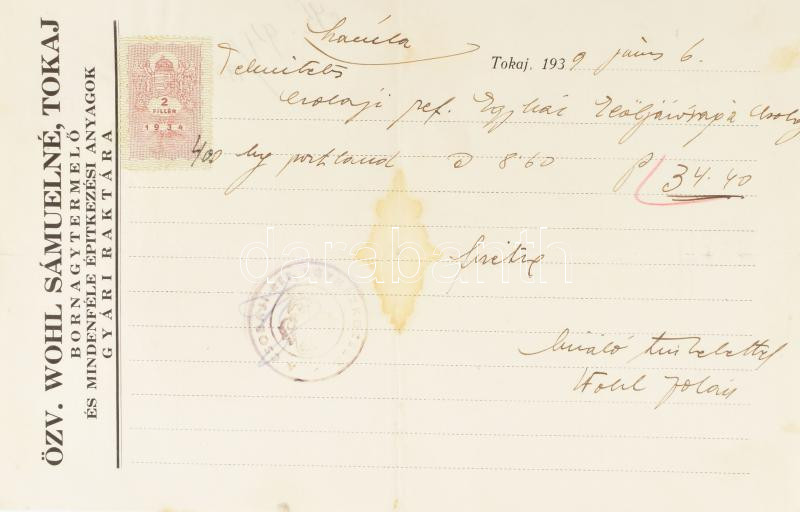 ÖZV. WOHL SÁMUELNÉ, TOKAJ
BORNAGYTERMELŐ
ÉS MINDENFÉLE ÉPITKEZÉSI ANYAGOK
GYÁRI RAKTÁRA
2
FILLÉR
1934
Számla
Tokaj, 1939 június 6.
Tekintetes
ref. Egyház
400 kg portland à 8.60 P 34.40
fizetve
darabanth
kiváló tisztelettel
Wohl